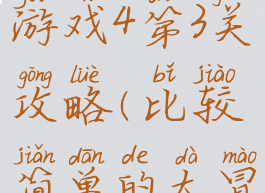 游戏4第3关
gōng lüè bǐ jiào
攻略(比较
jiǎn dān de dà mào
简单的大冒